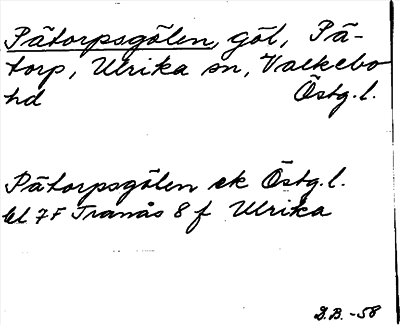 Pätorpsgölen, göl, Pä-
torp, Ulrika sn, Valkebo
hd Östg.l.
Pätorpsgölen ek Östg.l.
bl 7F Tranås 8 f Ulrika
D.B. -58